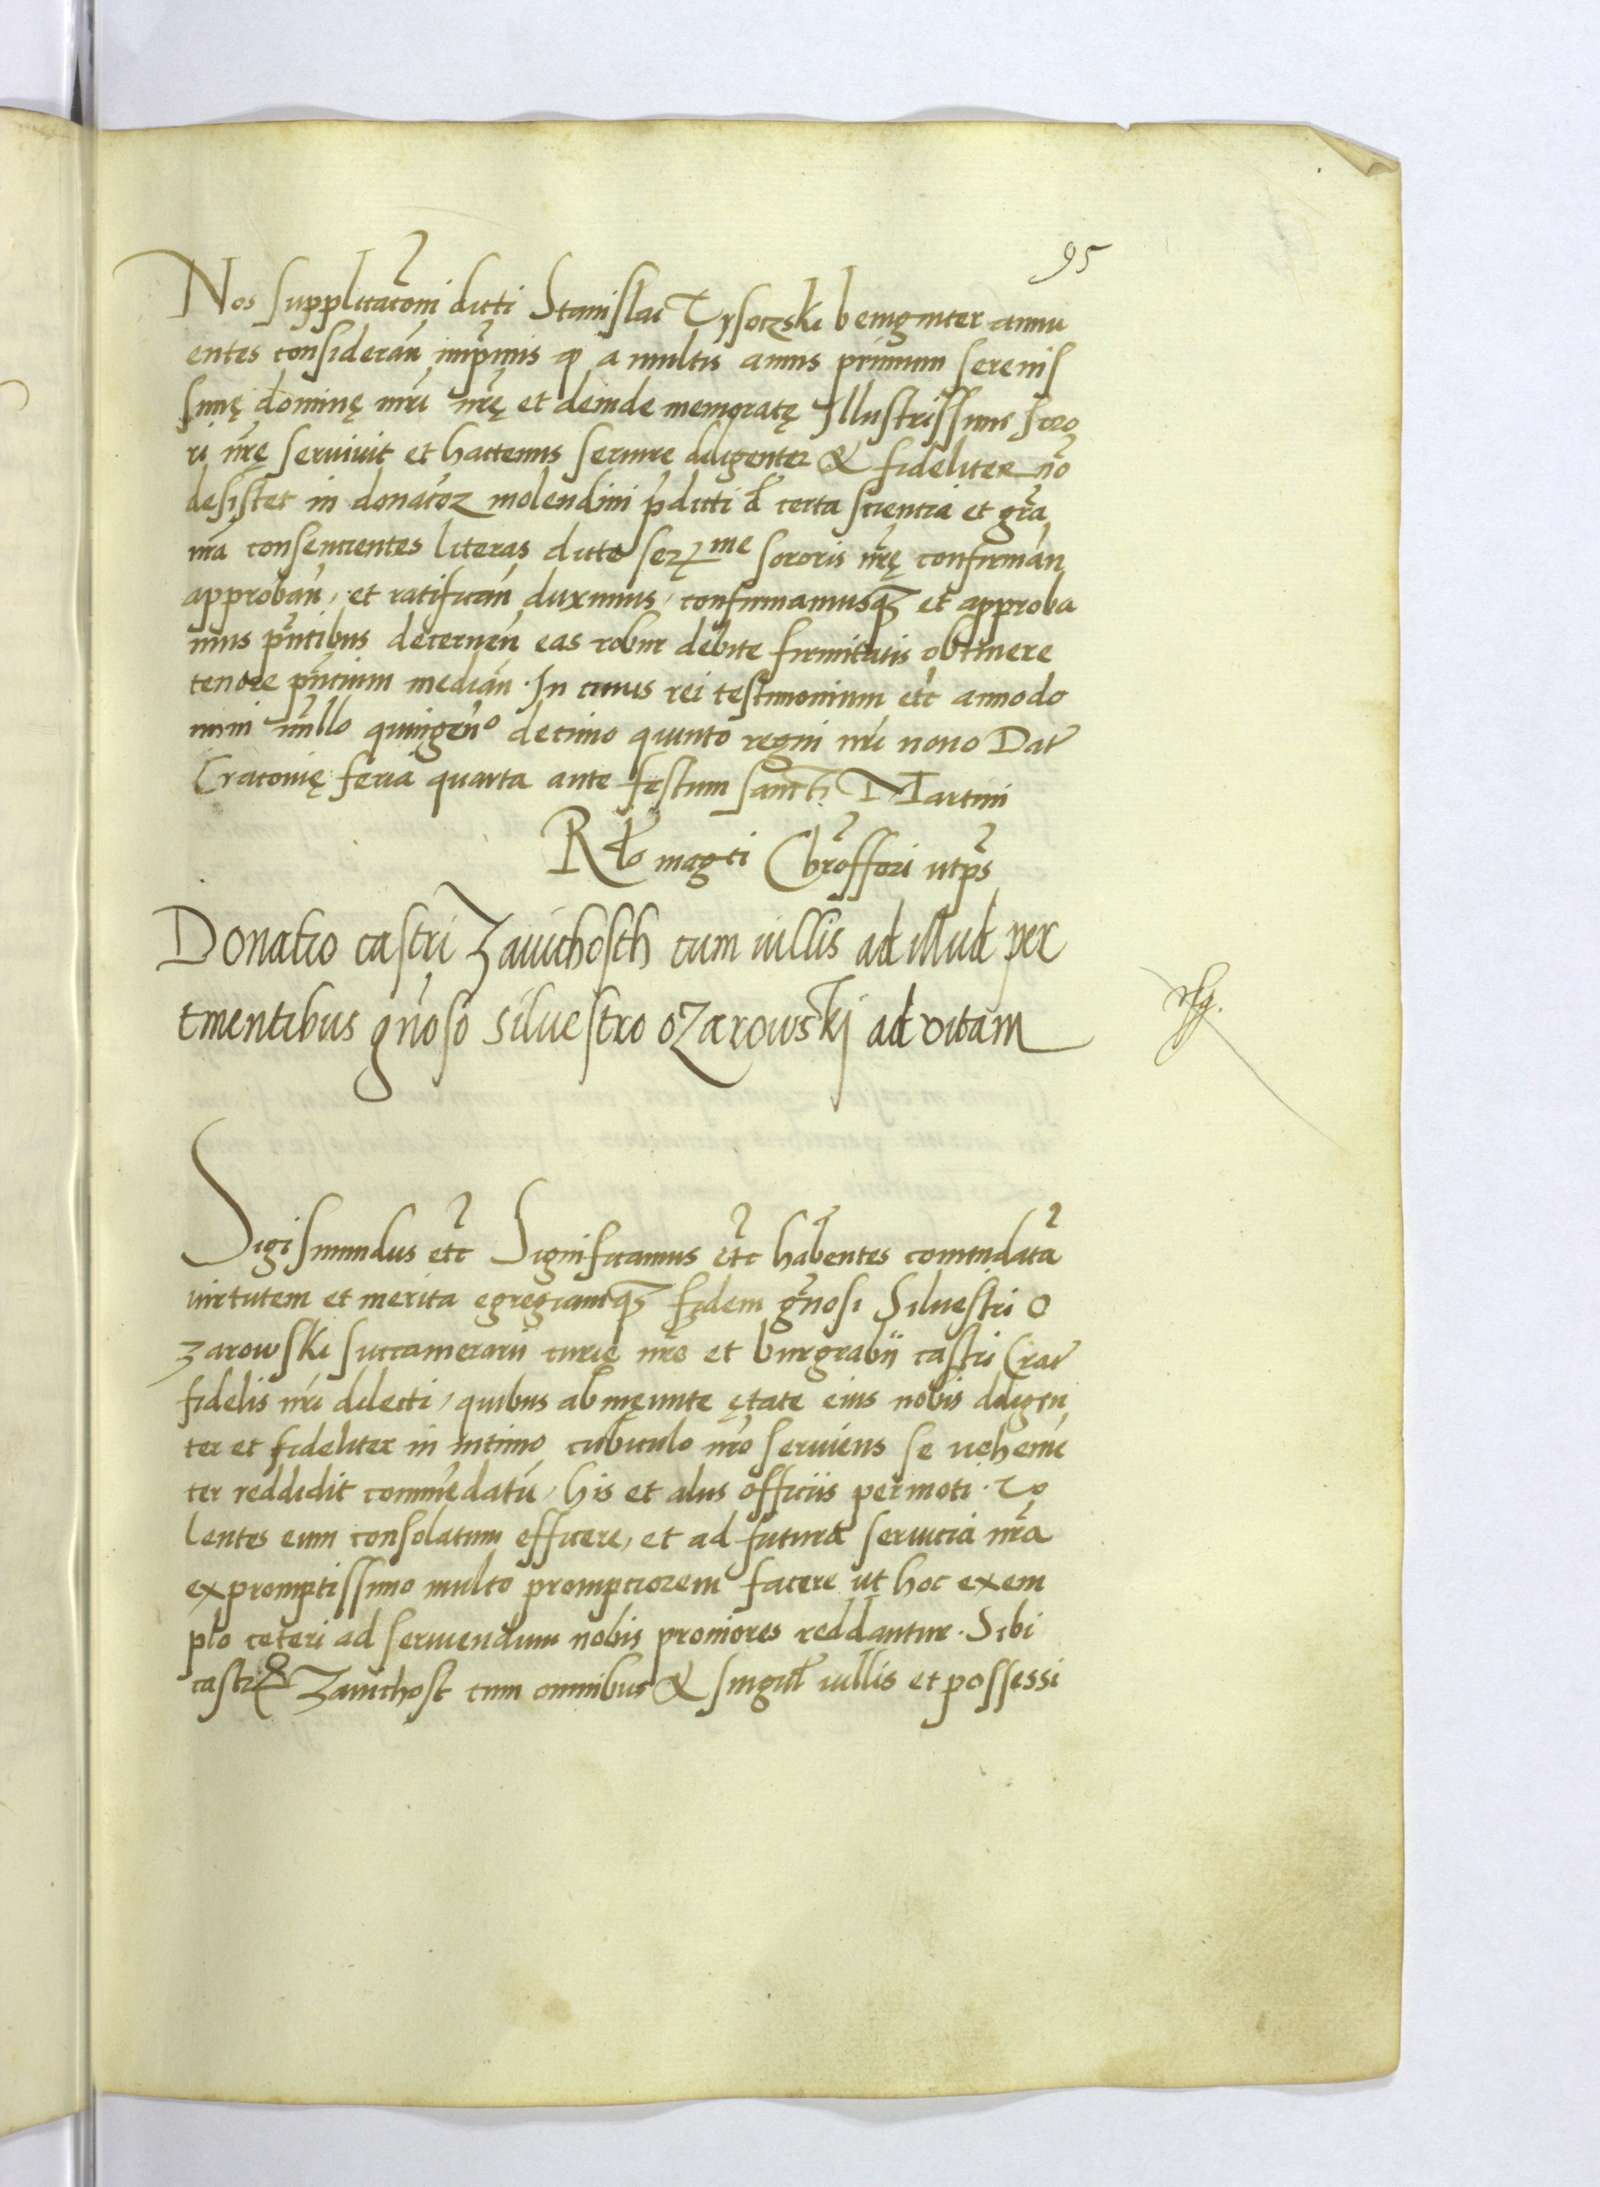 95
Nos supplicac̃oni dicti Stanislai Tysoczski benigniter annu
entes considerãn̄ imp̄mis ꝙ a multis annis primum serenis
simę dominę mr̄i nr̄ę et deinde memoratę Illustrissime soro
ri nr̄ę servivit et hactenus servire diligenter & fideliter nō
desistet in donacōe molendini p̄dicti d̄ certa scientia et gr̄a
nr̄a consencientes literas dicte ser^me sororis nr̄ę confirman̄
approban̄, et ratifican̄ duximus, confirmamusqꝫ et approba
mus pn̄tibus decernen̄ eas robur debite firmitatis obtinere
tenore pn̄cium median̄. In cuius rei testimonium etc anno do
mini mill̄o quingen̄^o decimo quinto regni nr̄i nono Dat
Cracovię feria quarta ante festum sancti Martini
Rl̄o mag^ci Chr̄offori ut pr̄s
Donatio castri Zavichosch cum villis ad illud per
tinentibus gn̄oso Silvestro Ozarowskj ad vitam
Sigismundus etc̃ Significamus etc̃ hab̄entes comendatã
virtutem et merita egregiamqꝫ fidem gñosi Silvestri O
zarowski succamerarii curie nr̄e et burgrabii castri Crac̄
fidelis nr̄i dilecti, quibus ab inęunte ętate eius nobis diligen
ter et fideliter in intimo cubiculo nr̄o serviens se vehemē
ter reddidit commēdatū, his et aliis officiis permoti. Vo
lentes eum consolatum efficere, et ad futura servicia nr̄a
ex promptissimo multo prompciorem facere ut hoc exem
plo ceteri ad serviendum nobis proniores reddantur. Sibi
castrū Zavichost cum omnibus & singul̄ villis et possessi